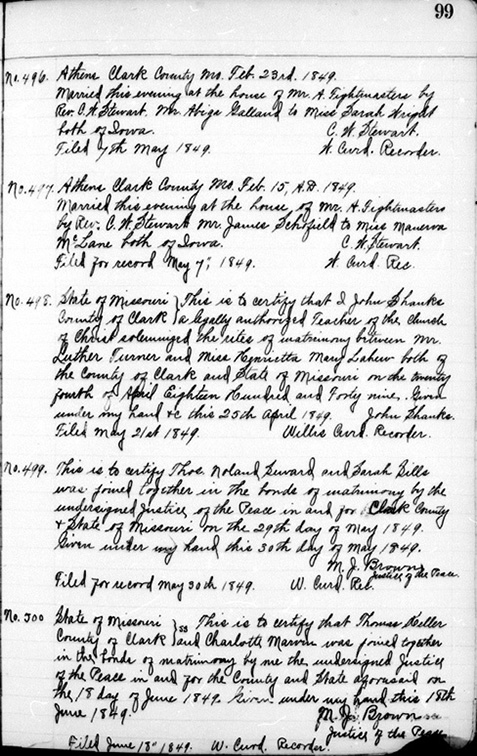 99
No. 496. Athens Clark County Mo. Feb. 23rd. 1849.
Married this evening at the house of Mr. A. Tightmasters by
Rev. C. W. Stewart. Mr. Abiga Galland to Miss Sarah Wright
both of Iowa. C. W. Stewart.
Filed 7th May 1849. W. Curd. Recorder.
No. 497. Athens Clark County Mo. Feb. 15, A.D. 1849.
Married this evening at the house of Mr. H. Tightmasters
by Rev. C. W. Stewart Mr. James Schofield to Miss Manerva
McLane both of Iowa. C. W. Stewart.
Filed for record May 7, 1849. W. Curd Rec.
No. 498. State of Missouri } This is to certify that I John Shanks
County of Clark } a legally authorized Teacher of the Church
of Christ solemnized the rites of matrimony between Mr.
Luther Turner and Miss Henrietta Mary Lahew both of
the County of Clark and State of Missouri on the twenty
fourth of April Eighteen Hundred and Forty nine. Given
under my hand &c this 25th April 1849. John Shanks.
Filed May 21st 1849. Willis Curd. Recorder.
No. 499. This is to certify Thos. Noland Seward and Sarah Sills
was joined together in the bonds of matrimony by the
undersigned Justice of the Peace in and for Clark County
& State of Missouri on the 29th day of May 1849.
Given under my hand this 30th day of May 1849.
M. J. Brown
Justice of the Peace.
Filed for record May 30th 1849. W. Curd. Rec.
No. 500 State of Missouri } ss This is to certify that Thomas Keller
County of Clark } and Charlotte Marvin was joined together
in the bonds of matrimony by me the undersigned Justice
of the Peace in and for the County and State aforesaid on
the 18 day of June 1849. Given under my hand this 18th
June 1849. M. J. Brown
Justice of the Peace
Filed June 18" 1849. W. Curd Recorder.